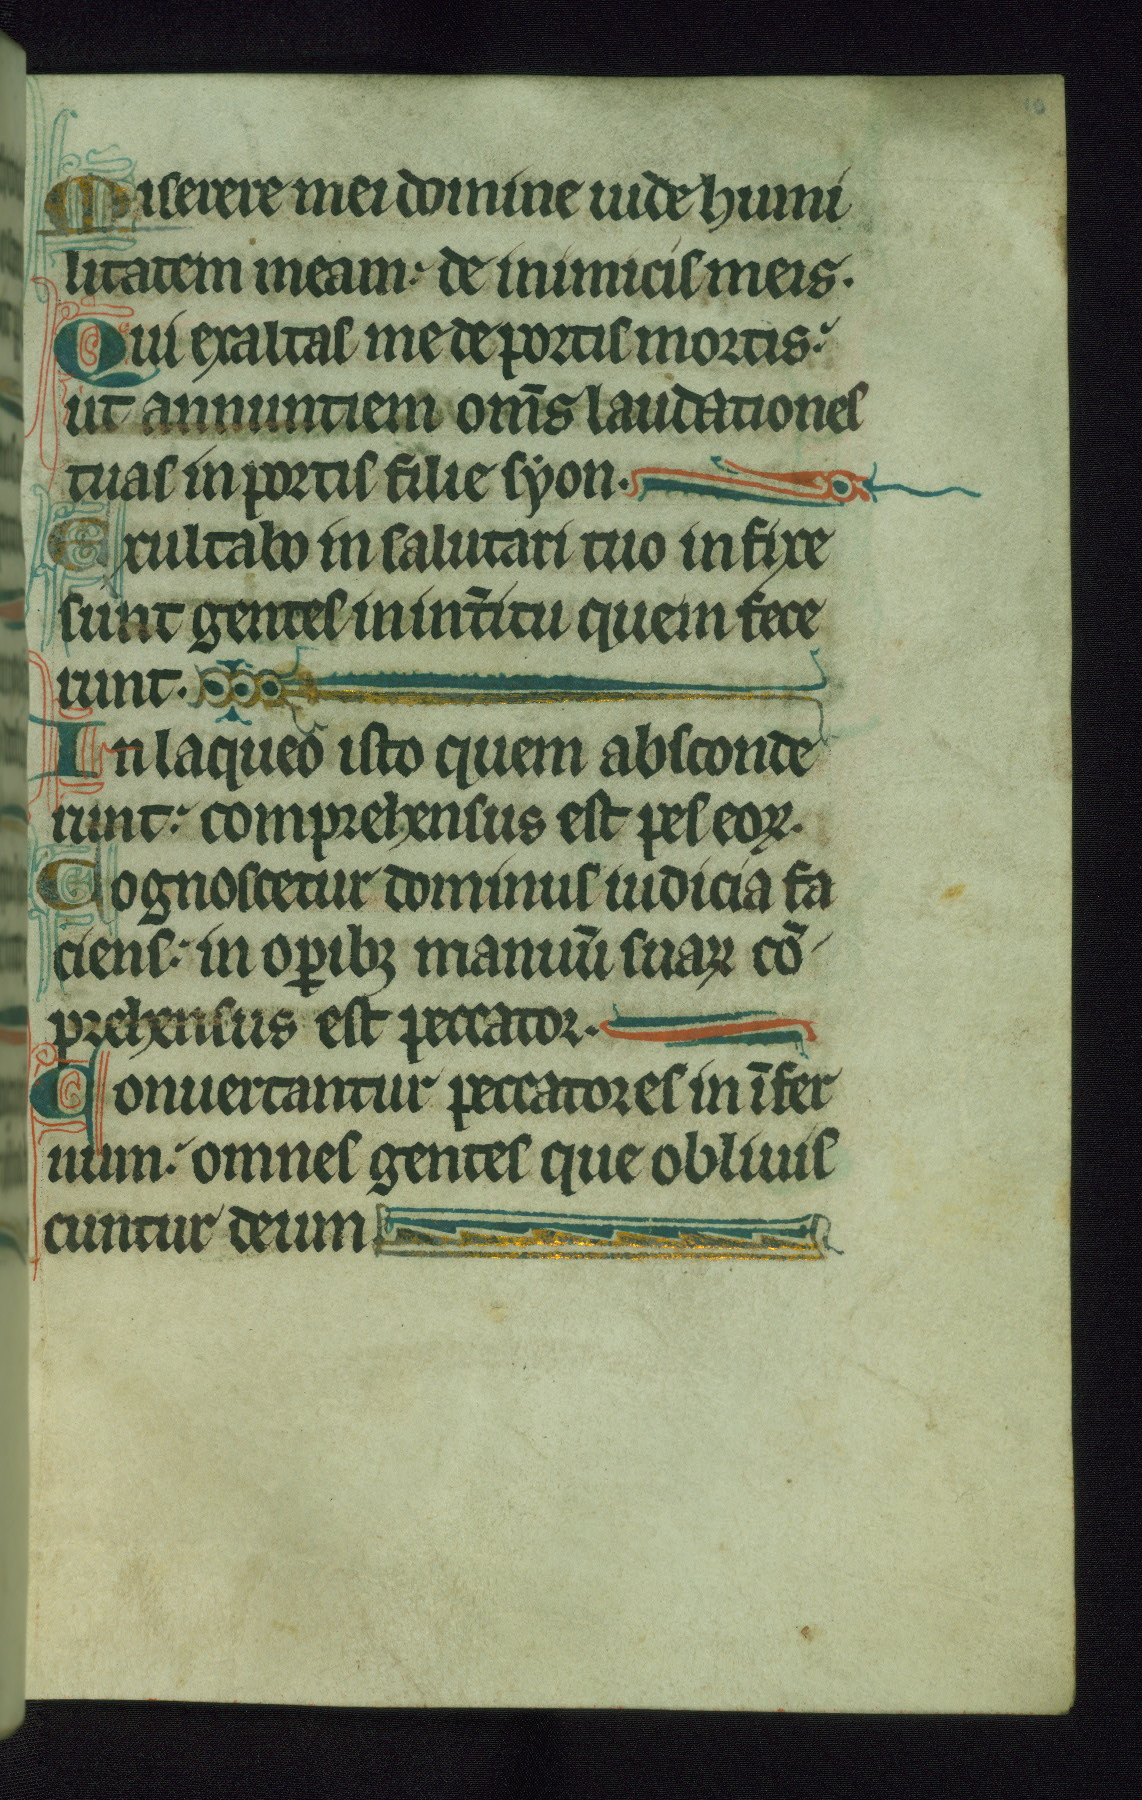 10
Miserere mei domine uide humi
litatem meam: de inimicis meis.
Qui exaltas me de portis mortis:
ut annuntiem om̄s laudationes
tuas in portis filie syon.
Exultabo in salutari tuo infixe
sunt gentes in int̄itu quem fece
runt.
In laqueo isto quem absconde
runt: comprehensus est pes eoꝝ.
Cognoscetur dominus iudicia fa
ciens: in oꝑibꝫ manuū suaꝝ cō
prehensus est peccator.
Conuertantur peccatores in īfer
num: omnes gentes que obliuis
cuntur deum